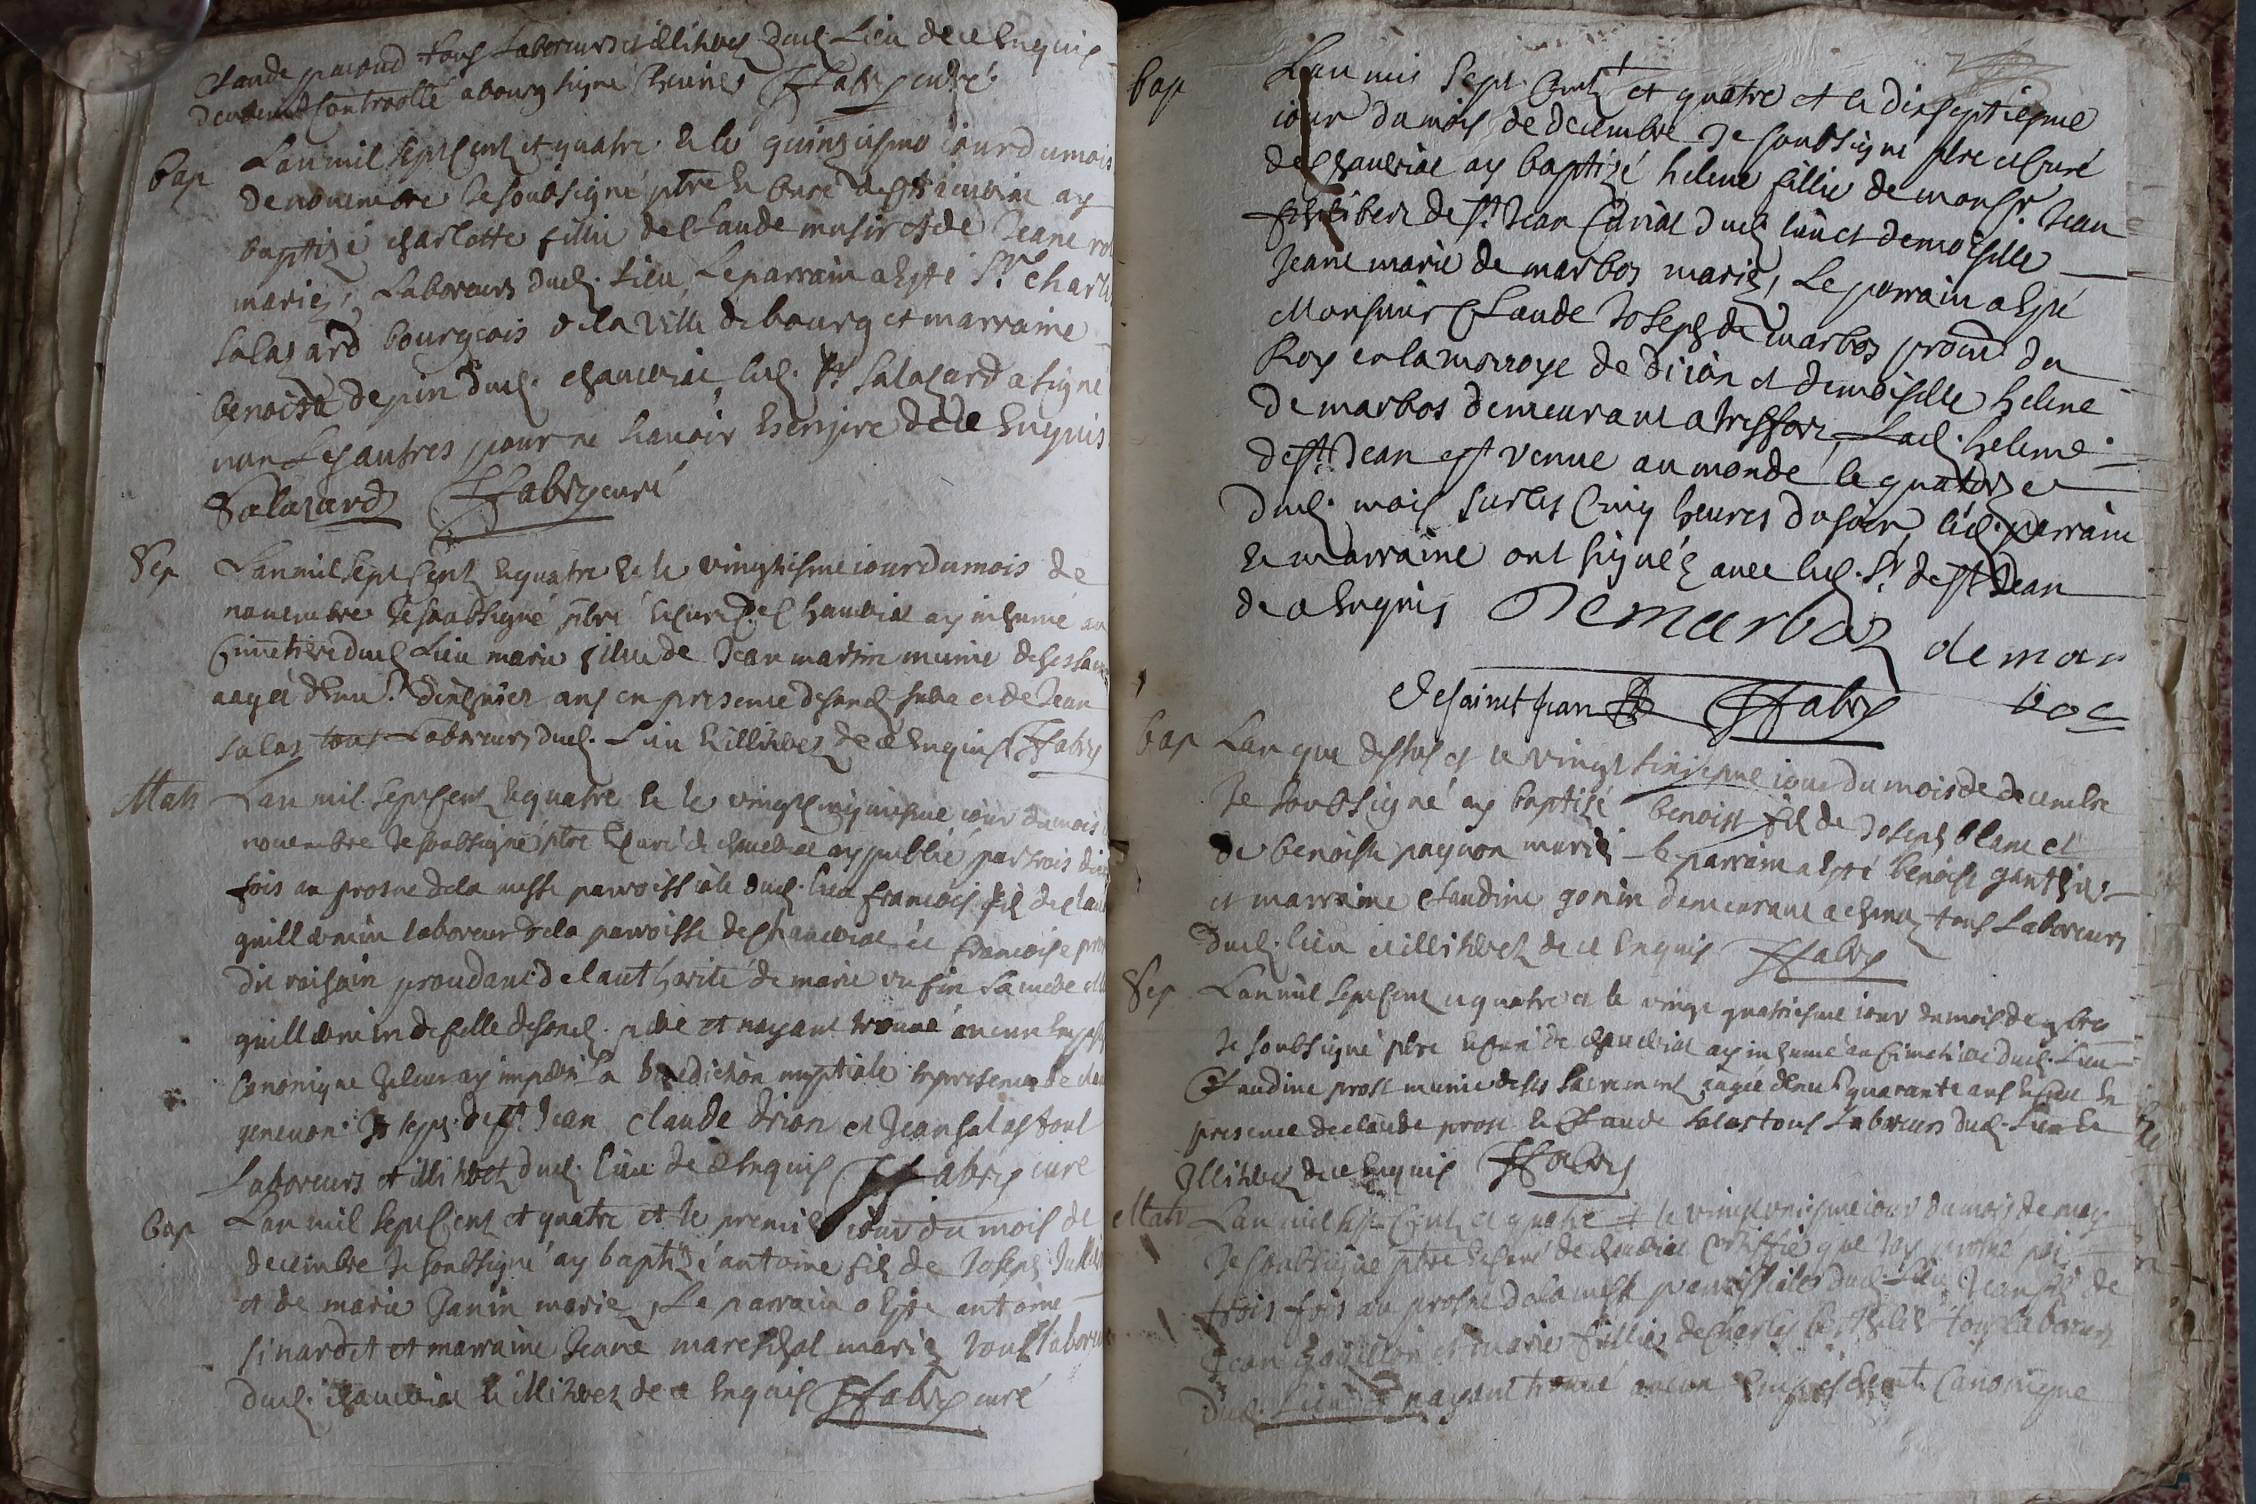 Claude tous Laboreurs et illiteres dud. Lieu de ce Enquis
controollé a bourg signé Fabry curé
Bap
Lan mil sept cent et quatre & le quinziesme iour du mois
de nouembre Je soubsigné ptre & Curé de Chaueiriat ay
baptizé charlotte fillie de Claude musir et de Jeane
mariez, Laboreurs dud. Lieu, Le parrain a Esté Sr. Charle
Salazard bourgeois de la Ville de bourg et marraine
benoiste depin dud. chaueiriat, led. Sr Salazard a signé
non Les autres pour ne scauoir Escrire de ce Enquis
Salazard Fabry curé
Sep
Lan mil sept Cent & quatre & le vingtiesme iour du mois de
nouembre Je soubsigné ptre & curé de Chaueiriat ay inhumé au
Cimetiere dud. Lieu marie fillie de Jean martin munie de ses sacre
aagée denu. ans en presence de sond. et de Jean
salas tous Laboreurs dud. Lieu & illiteres de ce Enquis Fabry
Mari
Lan mil sept Cent & quatre & le vingt cinquiesme iour du mois
nouembre Je soubsigné ptre & Curé de chaueiriat ay publié par trois
fois au prosne de la messe parroissiale dud. lieu francois fils de clau
guillermin laboreur de la parroisse de Chaueiriat et francoise
du raisoin de lauthorité de marie sa mere
guillermin de celle de sond. pere et nayant trouué aucun Empes
Canonique Je leur ay imparti la benediction nuptiale En presence de
Joseph de St. Jean claude Brion et Jean salas tous
Laboreurs et illiteres dud. lieu de ce Enquis Fabry curé
Bap
Lan mil sept Cent et quatre et le premier iour du mois de
decembre Je soubsigné ay baptizé antoine fils de Joseph
et de marie Janin mariez, Le parrain a Esté antoine
sinardet et marraine Jeane mareschal mariez tous labor
dud. chaueiriat & illiteres de ce Enquis Fabry curé
Bap
Lan mil sept Cent et quatre et le dixseptiesme
iour du mois de decembre Je soubsigné ptre et Curé
de Chaueiriat ay baptizé helene fillie de monsr. Jean
philibert de St. Jean dud. lieu et demoiselle
Jeane marie de marbos mariez, Le parrain a Esté
Monsieur Claude Joseph de marbos procur. du
Roy en la de dijon et demoiselle helene
de marbos demeurant a treffort, Lad. helene
de St. Jean est venue au monde le quatorze
dud. mois sur les Cinq heures du soir, led. parrain
& marraine ont signéz auec led. Sr de St. Jean
de ce Enquis Demarboz demar
boz
De sainct Jean Fabry
Bap
Lan que dessus et le vingt sixiesme iour du mois de decembre
Je soubsigné ay baptizé benoist fils de Joseph blanc et
de benoiste paynon mariez le parrain a Esté benoist ganthier
et marraine claudine gonin demeurant a tous Laboreurs
dud. lieu et illiteres de ce Enquis Fabry
Sep
Lan mil sept Cent & quatre et le vingt quatriesme iour du mois de
Je soubsigné ptre & Curé de chaueiriat ay inhumé au Cimetiere dud. Lieu
Claudine prost munie de ses sacrement aagée denu. quarante ans
presence de claude prost & Claude salas tous Laboreurs dud. Lieu &
Illiteres de ce Enquis Fabry
Mari
Lan mil sept Cent et quatre et le vingt iour du mois de may
Je soubsigné ptre & Curé de chaueiriat Certiffie que
trois fois au prosne de la messe parroissiale dud. Lieu Jean fils de
Jean et marie fillie de Charles tous laboreurs
dud. Lieu & nayant trouué aucun Empeschement Canonique